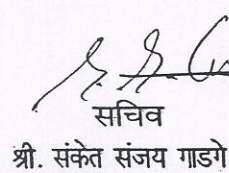 सचिव
श्री. संकेत संजय गाडगे